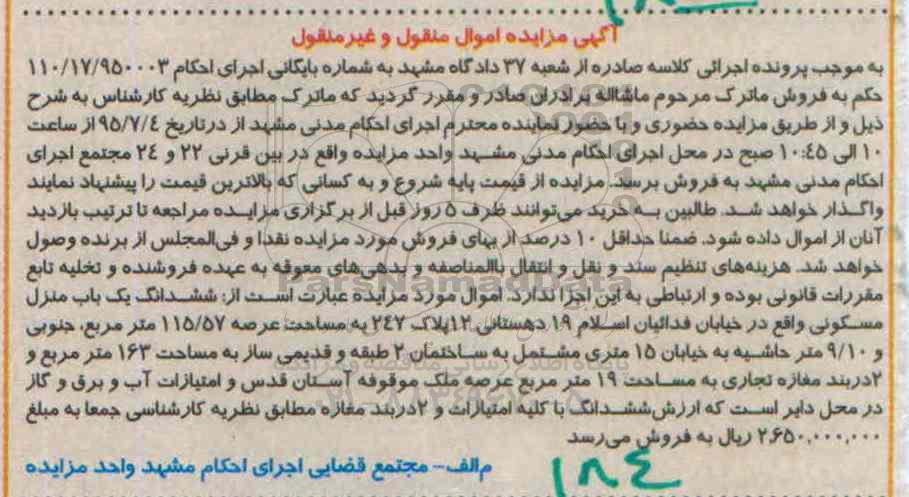 آگهی مزایده اموال منقول و غیرمنقول
به موجب پرونده اجرائی کلاسه صادره از شعبه ۳۷ دادگاه مشهد به شماره بایگانی اجرای احکام ۱۱۰/۱۷/۹۵۰۰۰۳
حکم به فروش ماترک مرحوم ماشااله برادران صادر و مقرر گردید که ماترک مطابق نظریه کارشناس به شرح
ذیل و از طریق مزایده حضوری و با حضور نماینده محترم اجرای احکام مدنی مشهد از درتاریخ ۹۵/۷/٤ از ساعت
۱۰ الی ۱۰:٤۵ صبح در محل اجرای احکام مدنی مشهد واحد مزایده واقع در بین قرنی ۲۲ و ۲٤ مجتمع اجرای
احکام مدنی مشهد به فروش برسد. مزایده از قیمت پایه شروع و به کسانی که بالاترین قیمت را پیشنهاد نمایند
واگذار خواهد شد. طالبین به خرید می‌توانند ظرف ۵ روز قبل از برگزاری مزایده مراجعه تا ترتیب بازدید
آنان از اموال داده شود. ضمنا حداقل ۱۰ درصد از بهای فروش مورد مزایده نقدا و فی‌المجلس از برنده وصول
خواهد شد. هزینه‌های تنظیم سند و نقل و انتقال بالمناصفه و بدهی‌های معوقه به عهده فروشنده و تخلیه تابع
مقررات قانونی بوده و ارتباطی به این اجرا ندارد. اموال مورد مزایده عبارت است از: ششدانگ یک باب منزل
مسکونی واقع در خیابان فدائیان اسلام ۱۹ دهستانی ۱۲پلاک ۲٤۷ به مساحت عرصه ۱۱۵/۵۷ متر مربع، جنوبی
و ۹/۱۰ متر حاشیه به خیابان ۱۵ متری مشتمل به ساختمان ۲ طبقه و قدیمی ساز به مساحت ۱۶۳ متر مربع و
۲دربند مغازه تجاری به مساحت ۱۹ متر مربع عرصه ملک موقوفه آستان قدس و امتیازات آب و برق و گاز
در محل دایر است که ارزش ششدانگ با کلیه امتیازات و ۲دربند مغازه مطابق نظریه کارشناسی جمعا به مبلغ
۲،۶۵۰،۰۰۰،۰۰۰ ریال به فروش می‌رسد
م‌الف- مجتمع قضایی اجرای احکام مشهد واحد مزایده
۱۸٤
ParsNamadData